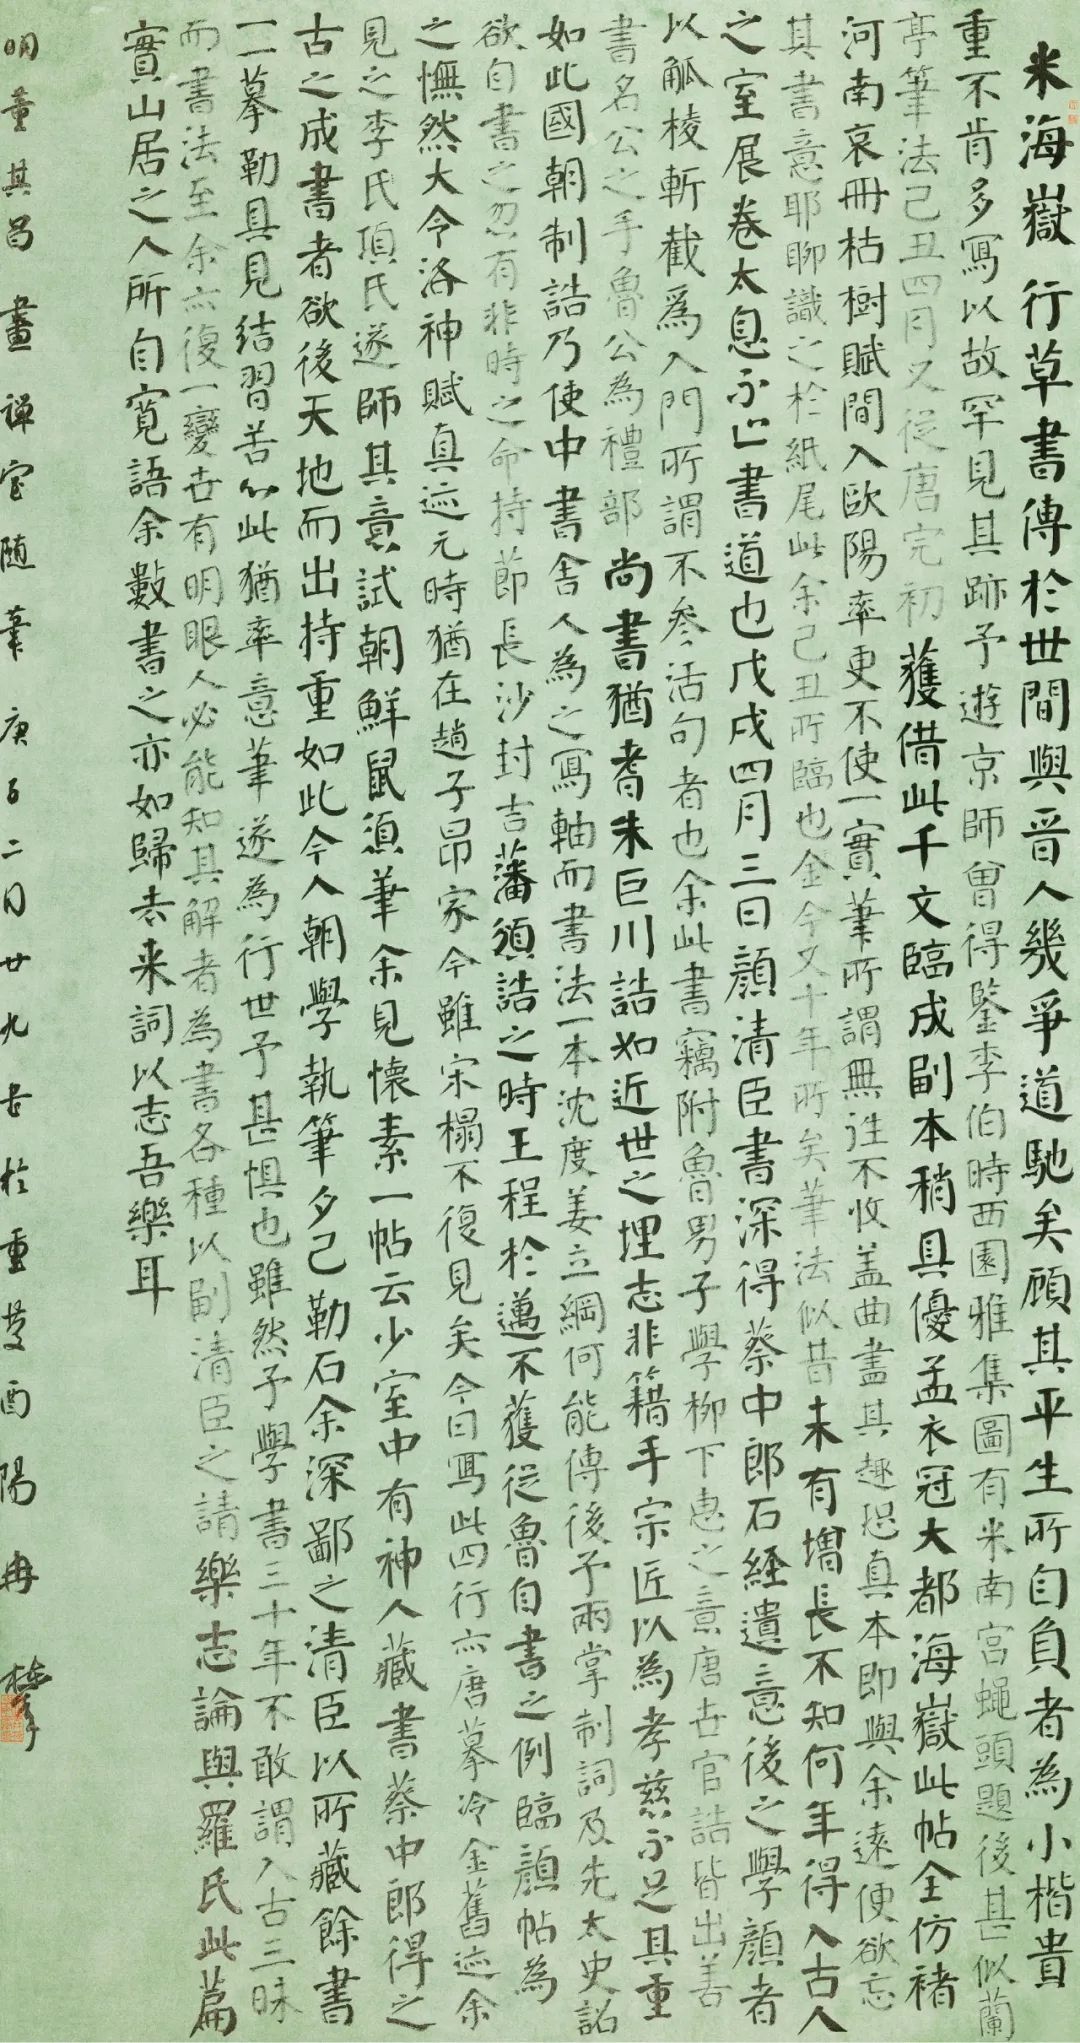 米海嶽行草書傳於世間與晉人幾爭道馳矣顧其平生所自負者為小楷貴
重不肯多寫以故罕見其跡予遊京師曾得鑒李伯時西園雅集圖有米南宮蠅頭題後甚似蘭
亭筆法己丑四月又從唐完初獲借此千文臨成副本稍具優孟衣冠大都海嶽此帖全仿褚
河南哀冊枯樹賦間入歐陽率更不使一實筆所謂無往不收蓋曲盡其趣恐真本即與余遠便欲忘
其書意耶聊識之於紙尾此余己丑所臨也金今又十年所矣筆法似昔未有增長不知何年得入古人
之室展卷太息不止書道也戊戌四月三日顏清臣書深得蔡中郎石經遺意後之學顏者
以觚棱斬截為入門所謂不參活句者也余此書竊附魯男子學柳下惠之意唐世官誥皆出善
書名公之手魯公為禮部尚書猶耆朱巨川誥如近世之埋志非籍手宗匠以為孝慈不足其重
如此國朝制誥乃使中書舍人為之寫軸而書法一本沈度姜立綱何能傳後予兩掌制詞及先太史誥
欲自書之忽有非時之命持節長沙封吉藩頒誥之時王程於邁不獲從魯自書之例臨顏帖為
之憮然大令洛神賦真迹元時猶在趙子昂家今雖宋榻不復見矣今日寫此四行亦唐摹冷金舊迹余
見之李氏項氏遂師其意試朝鮮鼠須筆余見懷素一帖云少室中有神人藏書蔡中郎得之
古之成書者欲後天地而出持重如此今人朝學執筆夕己勒石余深鄙之清臣以所藏餘書
一一摹勒具見結習苦心此猶率意筆遂為行世予甚惧也雖然予學書三十年不敢謂入古三昧
而書法至余亦復一變世有明眼人必能知其解者為書各種以副清臣之請樂志論與羅氏此篇
實山居之人所自寬語余數書之亦如歸去來詞以志吾樂耳
明董其昌畫禅室随筆庚子二月廿九日於重慶酉陽冉